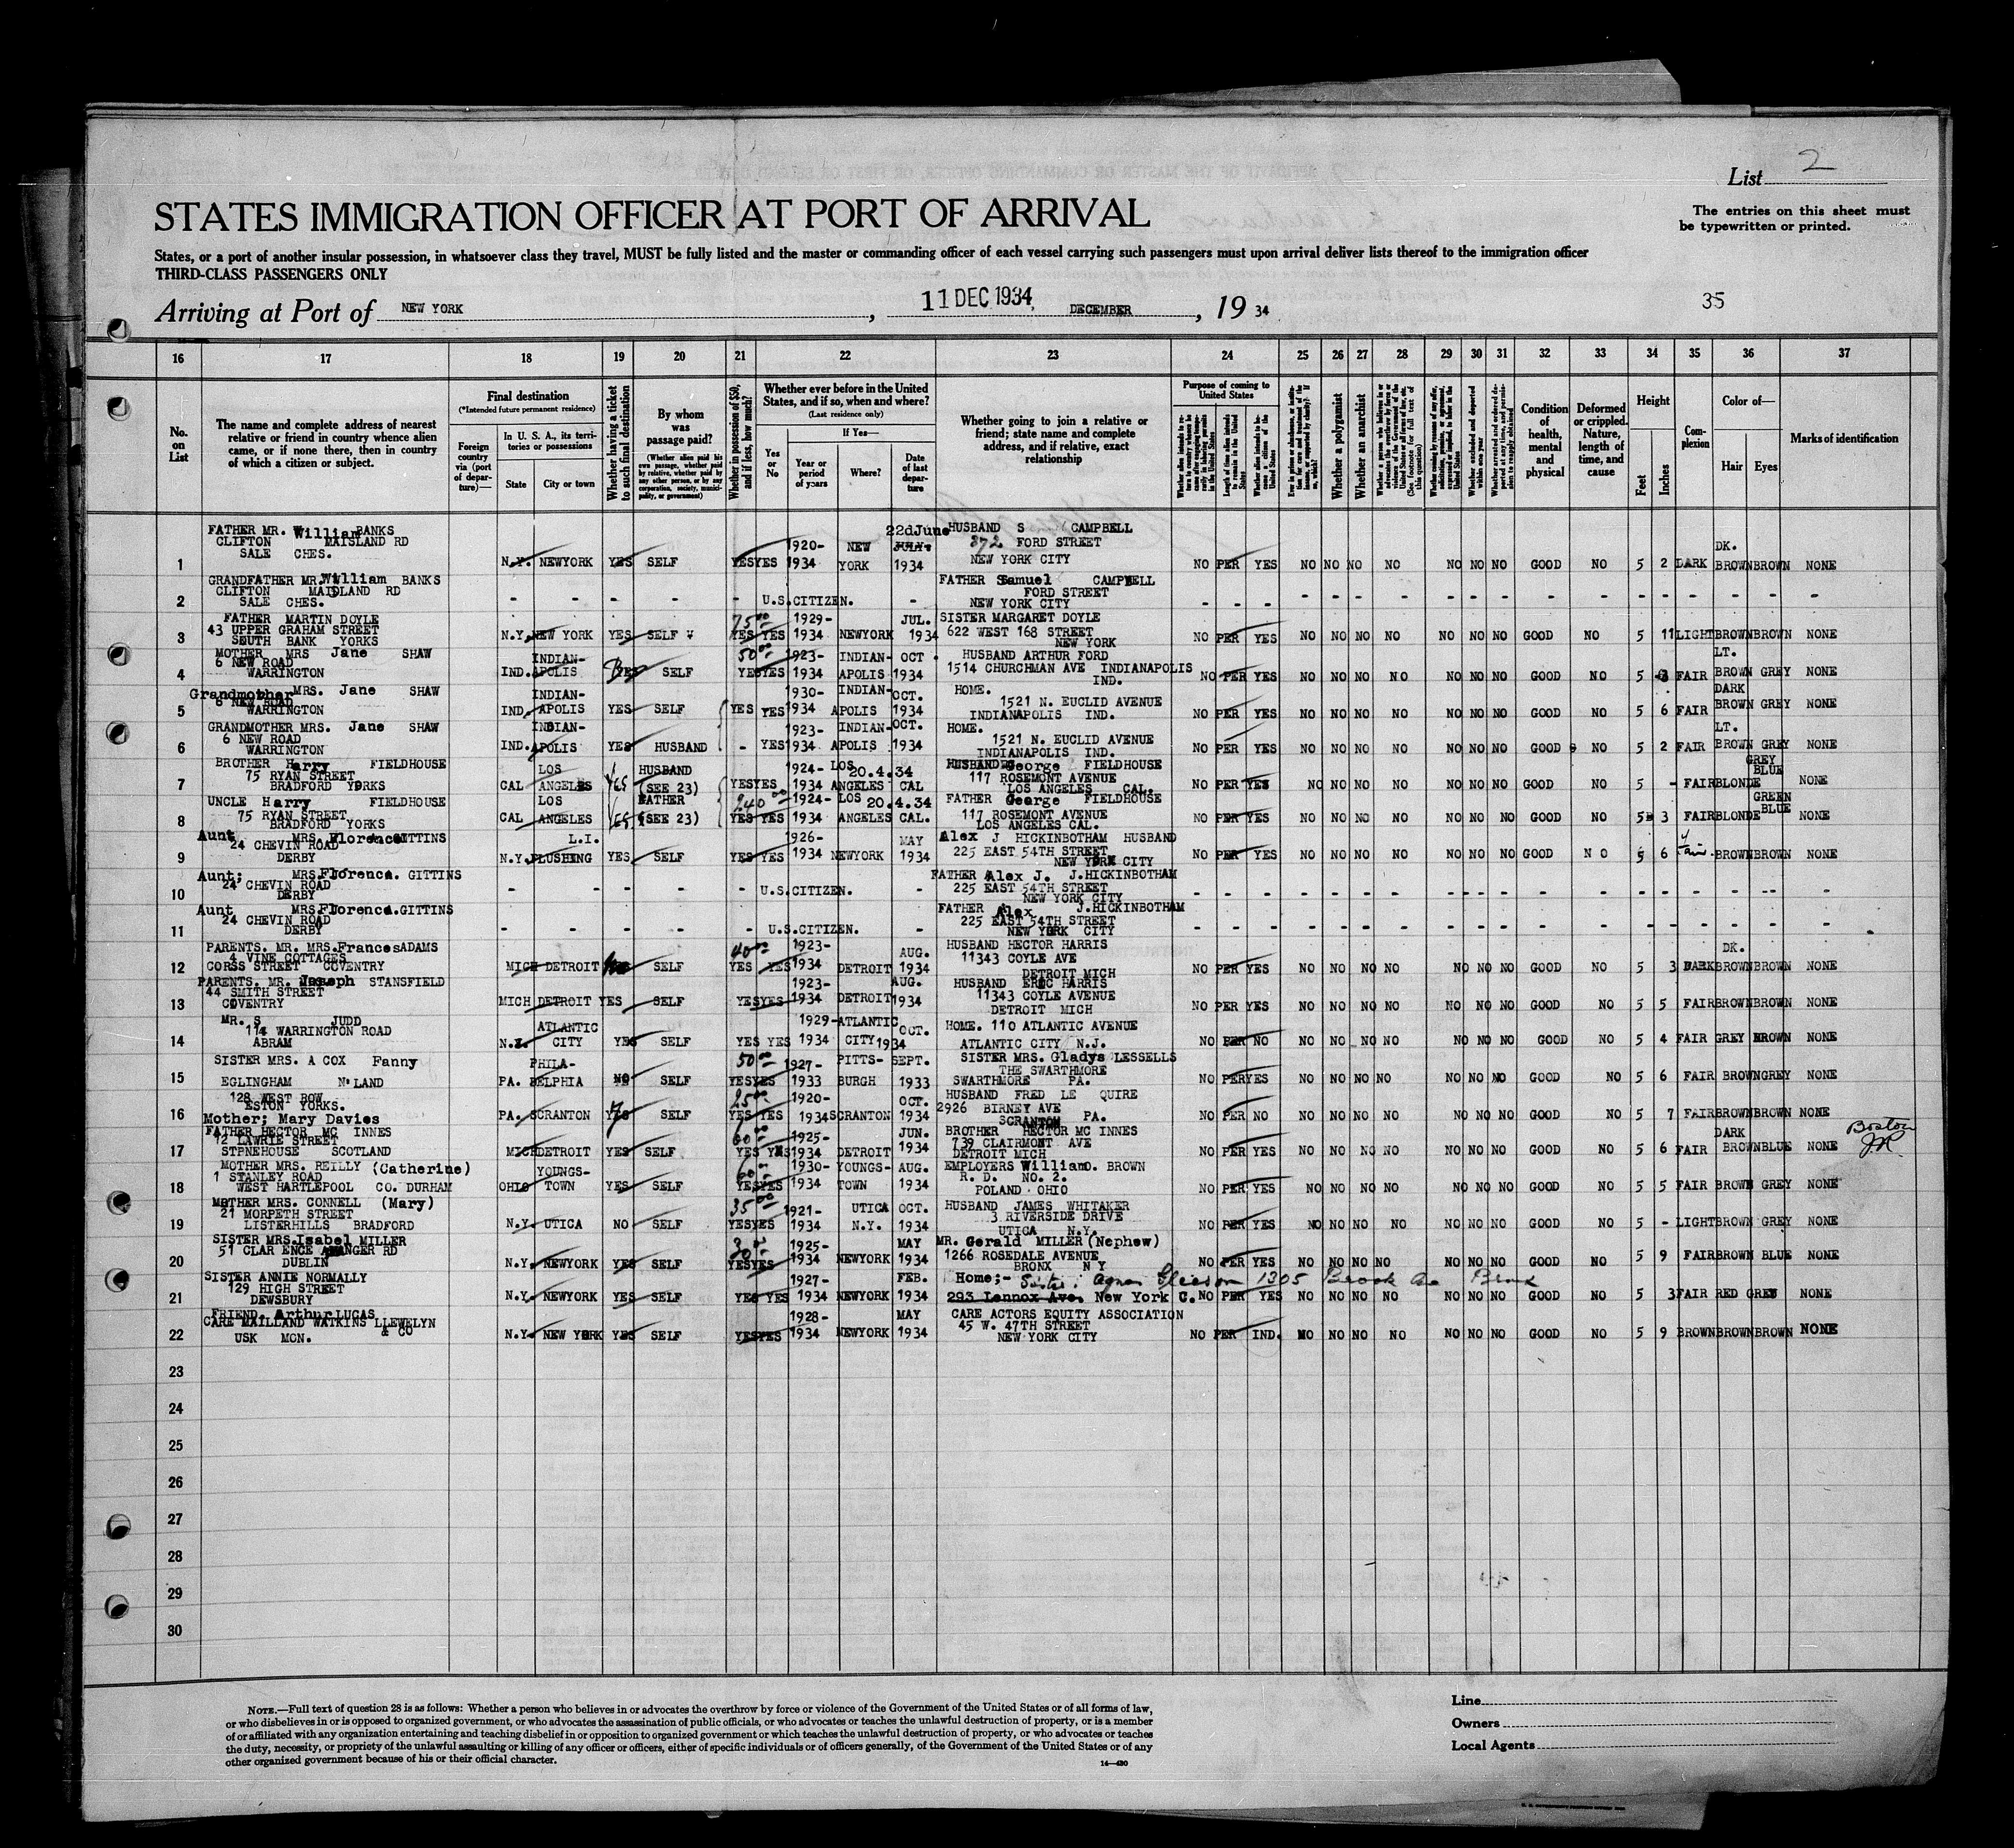 List 2
STATES IMMIGRATION OFFICER AT PORT OF ARRIVAL
The entries on this sheet must
be typewritten or printed.
States, or a port of another insular possession, in whatsoever class they travel, MUST be fully listed and the master or commanding officer of each vessel carrying such passengers must upon arrival deliver lists thereof to the immigration officer
THIRD-CLASS PASSENGERS ONLY
Arriving at Port of NEW YORK, 11 DEC 1934, DECEMBER, 19 34
35
16 17 18 19 20 21 22 23 24 25 26 27 28 29 30 31 32 33 34 35 36 37
No. on List
The name and complete address of nearest relative or friend in country whence alien came, or if none there, then in country of which a citizen or subject.
Final destination
(*Intended future permanent residence)
Foreign country via (port of departure)—
In U. S. A., its territories or possessions
State
City or town
Whether having a ticket to such final destination
By whom was passage paid?
(Whether alien paid his own passage, whether paid by relative, whether paid by any other person, or by any corporation, society, municipality, or government)
Whether in possession of $50, and if less, how much?
Whether ever before in the United States, and if so, when and where?
(Last residence only)
Yes or No
If Yes—
Year or period of years
Where?
Date of last departure
Whether going to join a relative or friend; state name and complete address, and if relative, exact relationship
Purpose of coming to United States
Length of time alien intends to remain in the United States
Whether alien intends to become a citizen of the United States
Whether a polygamist
Whether an anarchist
Condition of health, mental and physical
Deformed or crippled. Nature, length of time, and cause
Height
Feet
Inches
Complexion
Color of—
Hair
Eyes
Marks of identification
FATHER MR. William BANKS 22d June HUSBAND S CAMPBELL
CLIFTON MAISLAND RD 1920- NEW JULY. 372 FORD STREET DK.
1 SALE CHES. N.Y. NEWYORK YES SELF YES YES 1934 YORK 1934 NEW YORK CITY NO PER YES NO NO NO NO NO NO NO GOOD NO 5 2 DARK BROWN BROWN NONE
GRANDFATHER MR. William BANKS FATHER Samuel CAMPBELL
CLIFTON MAISLAND RD FORD STREET
2 SALE CHES. - - - - - U.S.CITIZEN. - NEW YORK CITY - - - - - - - - - - - - - - - - - -
FATHER MARTIN DOYLE 75 00 1929- JUL. SISTER MARGARET DOYLE
43 UPPER GRAHAM STREET 622 WEST 168 STREET
3 SOUTH BANK YORKS N.Y. NEW YORK YES SELF YES YES 1934 NEWYORK 1934 NEW YORK NO PER YES NO NO NO NO NO NO NO GOOD NO 5 11 LIGHT BROWN BROWN NONE
MOTHER MRS Jane SHAW INDIAN- 50 00 1923- INDIAN- OCT. HUSBAND ARTHUR FORD LT.
6 NEW ROAD 1514 CHURCHMAN AVE INDIANAPOLIS
4 WARRINGTON IND. APOLIS YES SELF YES YES 1934 APOLIS 1934 IND. NO PER YES NO NO NO NO NO NO NO GOOD NO 5 FAIR BROWN GREY NONE
Grandmother MRS. Jane SHAW INDIAN- 1930- INDIAN- OCT. HOME. DARK
6 NEW ROAD 1521 N. EUCLID AVENUE
5 WARRINGTON IND. APOLIS YES SELF YES YES 1934 APOLIS 1934 INDIANAPOLIS IND. NO PER YES NO NO NO NO NO NO NO GOOD NO 5 6 FAIR BROWN GREY NONE
GRANDMOTHER MRS. Jane SHAW INDIAN- 1923- INDIAN- OCT. HOME. LT.
6 NEW ROAD 1521 N. EUCLID AVENUE
6 WARRINGTON IND. APOLIS YES HUSBAND - YES 1934 APOLIS 1934 INDIANAPOLIS IND. NO PER YES NO NO NO NO NO NO NO GOOD NO 5 2 FAIR BROWN GREY NONE
BROTHER Harry FIELDHOUSE LOS HUSBAND 1924- LOS 20.4.34 HUSBAND George FIELDHOUSE GREY
75 RYAN STREET 117 ROSEMONT AVENUE BLUE
7 BRADFORD YORKS CAL ANGELES YES (SEE 23) YES YES 1934 ANGELES CAL LOS ANGELES CAL. NO PER YES NO NO NO NO NO NO NO GOOD NO 5 - FAIR BLONDE NONE
UNCLE Harry FIELDHOUSE LOS FATHER 240 00 1924- LOS 20.4.34 FATHER George FIELDHOUSE GREEN
75 RYAN STREET 117 ROSEMONT AVENUE BLUE
8 BRADFORD YORKS CAL ANGELES YES (SEE 23) YES YES 1934 ANGELES CAL. LOS ANGELES CAL. NO PER YES NO NO NO NO NO NO NO GOOD NO 5 3 FAIR BLONDE NONE
Aunt MRS. Florence GITTINS L.I. 1926- MAY Alex J HICKINBOTHAM HUSBAND
24 CHEVIN ROAD 225 EAST 54TH STREET
9 DERBY N.Y. FLUSHING YES SELF YES YES 1934 NEWYORK 1934 NEW YORK CITY NO PER YES NO NO NO NO NO NO NO GOOD NO 5 6 Fair BROWN BROWN NONE
Aunt; MRS. Florence. GITTINS FATHER Alex J. J.HICKINBOTHAM
24 CHEVIN ROAD 225 EAST 54TH STREET
10 DERBY - - - - - U.S.CITIZEN. - NEW YORK CITY - - - - - - - - - - - - - - - - -
Aunt MRS. Florence. GITTINS FATHER Alex J.HICKINBOTHAM
24 CHEVIN ROAD 225 EAST 54TH STREET
11 DERBY - - - - - U.S.CITIZEN. - NEW YORK CITY - - - - - - - - - - - - - - - - -
PARENTS. MR. MRS. Frances ADAMS 40 00 1923- AUG. HUSBAND HECTOR HARRIS DK.
4 VINE COTTAGES 11343 COYLE AVE
12 CORSS STREET COVENTRY MICH DETROIT SELF YES YES 1934 DETROIT 1934 DETROIT MICH NO PER YES NO NO NO NO NO NO NO GOOD NO 5 3 DARK BROWN BROWN NONE
PARENTS. MR. Joseph STANSFIELD 1923- AUG. HUSBAND ERIC HARRIS
44 SMITH STREET 11343 COYLE AVENUE
13 COVENTRY MICH DETROIT YES SELF YES YES 1934 DETROIT 1934 DETROIT MICH NO PER YES NO NO NO NO NO NO NO GOOD NO 5 5 FAIR BROWN BROWN NONE
MR. S JUDD ATLANTIC 1929- ATLANTIC OCT. HOME. 110 ATLANTIC AVENUE
114 WARRINGTON ROAD
14 ABRAM N.J. CITY YES SELF YES YES 1934 CITY 1934 ATLANTIC CITY N.J. NO PER NO NO NO NO NO NO NO NO GOOD NO 5 4 FAIR GREY BROWN NONE
SISTER MRS. A COX Fanny PHILA- 50 00 1927- PITTS- SEPT. SISTER MRS. Gladys LESSELLS
THE SWARTHMORE
15 EGLINGHAM N'LAND PA. DELPHIA NO SELF YES YES 1933 BURGH 1933 SWARTHMORE PA. NO PER YES NO NO NO NO NO NO NO GOOD NO 5 6 FAIR BROWN GREY NONE
128 WEST ROW 25 00 1920- OCT. HUSBAND FRED LE QUIRE
ESTON YORKS. 2926 BIRNEY AVE
16 Mother; Mary Davies PA. SCRANTON YES SELF YES YES 1934 SCRANTON 1934 SCRANTON PA. NO PER NO NO NO NO NO NO NO NO GOOD NO 5 7 FAIR BROWN BROWN NONE
FATHER HECTOR MC INNES 60 00 1925- JUN. BROTHER HECTOR MC INNES DARK Boston
12 LAWRIE STREET 739 CLAIRMONT AVE
17 STPNEHOUSE SCOTLAND MICH DETROIT YES SELF YES YES 1934 DETROIT 1934 DETROIT MICH NO PER YES NO NO NO NO NO NO NO GOOD NO 5 6 FAIR BROWN BLUE NONE
MOTHER MRS. REILLY (Catherine) YOUNGS- 60 00 1930- YOUNGS- AUG. EMPLOYERS William O. BROWN
1 STANLEY ROAD R. D. NO. 2.
18 WEST HARTLEPOOL CO. DURHAM OHIO TOWN YES SELF YES YES 1934 TOWN 1934 POLAND. OHIO NO PER YES NO NO NO NO NO NO NO GOOD NO 5 5 FAIR BROWN GREY NONE
MOTHER MRS. CONNELL (Mary) 35 00 1921- UTICA OCT. HUSBAND JAMES WHITAKER
21 MORPETH STREET 3 RIVERSIDE DRIVE
19 LISTERHILLS BRADFORD N.Y. UTICA NO SELF YES YES 1934 N.Y. 1934 UTICA N.Y. NO PER YES NO NO NO NO NO NO NO GOOD NO 5 - LIGHT BROWN GREY NONE
SISTER MRS. Isabel MILLER 30 00 1925- MAY MR. Gerald MILLER (Nephew)
51 CLAR ENCE MANGER RD 1266 ROSEDALE AVENUE
20 DUBLIN N.Y. NEWYORK YES SELF YES YES 1934 NEWYORK 1934 BRONX N Y NO PER YES NO NO NO NO NO NO NO GOOD NO 5 9 FAIR BROWN BLUE NONE
SISTER ANNIE NORMALLY 1927- FEB. Home;- Sister: Agnes Gleeson 1305 Brook Av Bronx
129 HIGH STREET
21 DEWSBURY N.Y. NEWYORK YES SELF YES YES 1934 NEWYORK 1934 293 Lennox Ave. New York C. NO PER YES NO NO NO NO NO NO NO GOOD NO 5 3 FAIR RED GREY NONE
FRIEND. Arthur LUCAS 1928- MAY CARE ACTORS EQUITY ASSOCIATION
CARE MAILLAND WATKINS LLEWELYN & CO 45 W. 47TH STREET
22 USK MON. N.Y. NEW YORK YES SELF YES YES 1934 NEWYORK 1934 NEW YORK CITY NO PER IND. NO NO NO NO NO NO NO GOOD NO 5 9 BROWN BROWN BROWN NONE
23
24
25
26
27
28
29
30
NOTE.—Full text of question 28 is as follows: Whether a person who believes in or advocates the overthrow by force or violence of the Government of the United States or of all forms of law,
or who disbelieves in or is opposed to organized government, or who advocates the assassination of public officials, or who advocates or teaches the unlawful destruction of property, or is a member
of or affiliated with any organization entertaining and teaching disbelief in or opposition to organized government or which teaches the unlawful destruction of property, or who advocates or teaches
the duty, necessity, or propriety of the unlawful assaulting or killing of any officer or officers, either of specific individuals or of officers generally, of the Government of the United States or of any
other organized government because of his or their official character.
14—430
Line
Owners
Local Agents